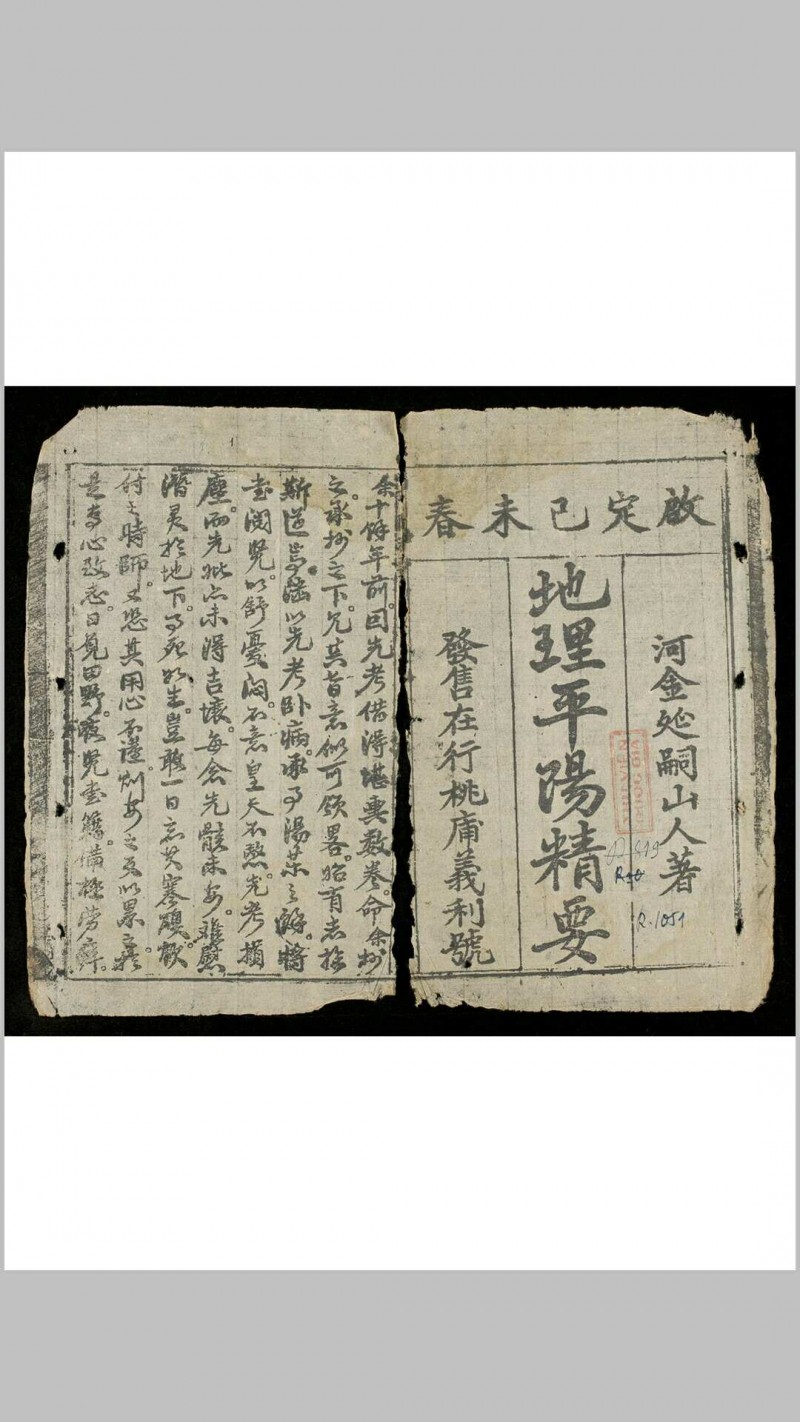 啟定己未春
河金延嗣山人著
地理平陽精要
發售在行桃庯義利號
R.1051
余十餘年前。因先考借得堪輿数卷。命余抄
之。承抄之下。尤其旨意似可領畧。始有志於
斯道焉。以先考卧病。承事湯葯之餘。將
玄閱覽。以舒憂悶。不意皇天不愁。先考損
塵。而先妣亦未得吉壤。每念先骸未安。难慰
潛灵於地下。事死如生。豈敢一日忘其寧
付之時師。又恐其用心不謹。以累
是專心致志。日覓田野。夜覽書籍。備極勞瘁。
1